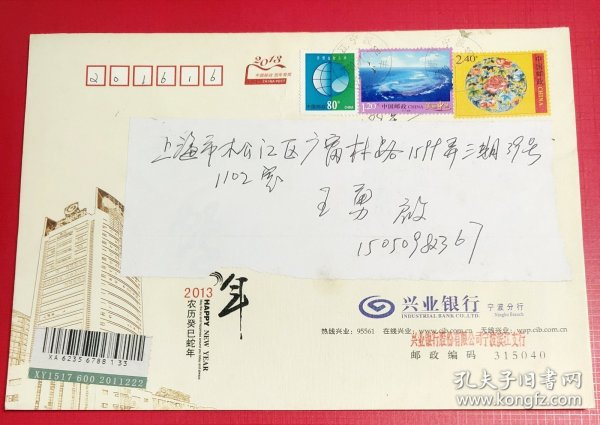 201616
2013
中国邮政 贺年有奖
CHINA POST
中国邮政 80分 CHINA
1.20元 中国邮政 CHINA
2.40元
中国邮政 CHINA
上海市松江区广富林路1599弄三期39号
1102室
王勇 启
15050982367
2013年
HAPPY NEW YEAR
农历癸巳蛇年
兴业银行 宁波分行
INDUSTRIAL BANK CO.,LTD. Ningbo Branch
热线兴业：95561 在线兴业：www.cib.com.cn 无线兴业：wap.cib.com.cn
兴业银行股份有限公司宁波滨江支行
邮政编码 315040
XA 62356788 1 33
XY1517 600 2011222
孔夫子旧书网
www.kongfz.com